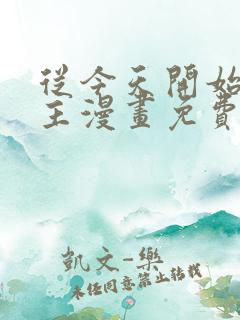 從今天開始
王漫畫免費
凱文-樂
未經同意禁止轉載